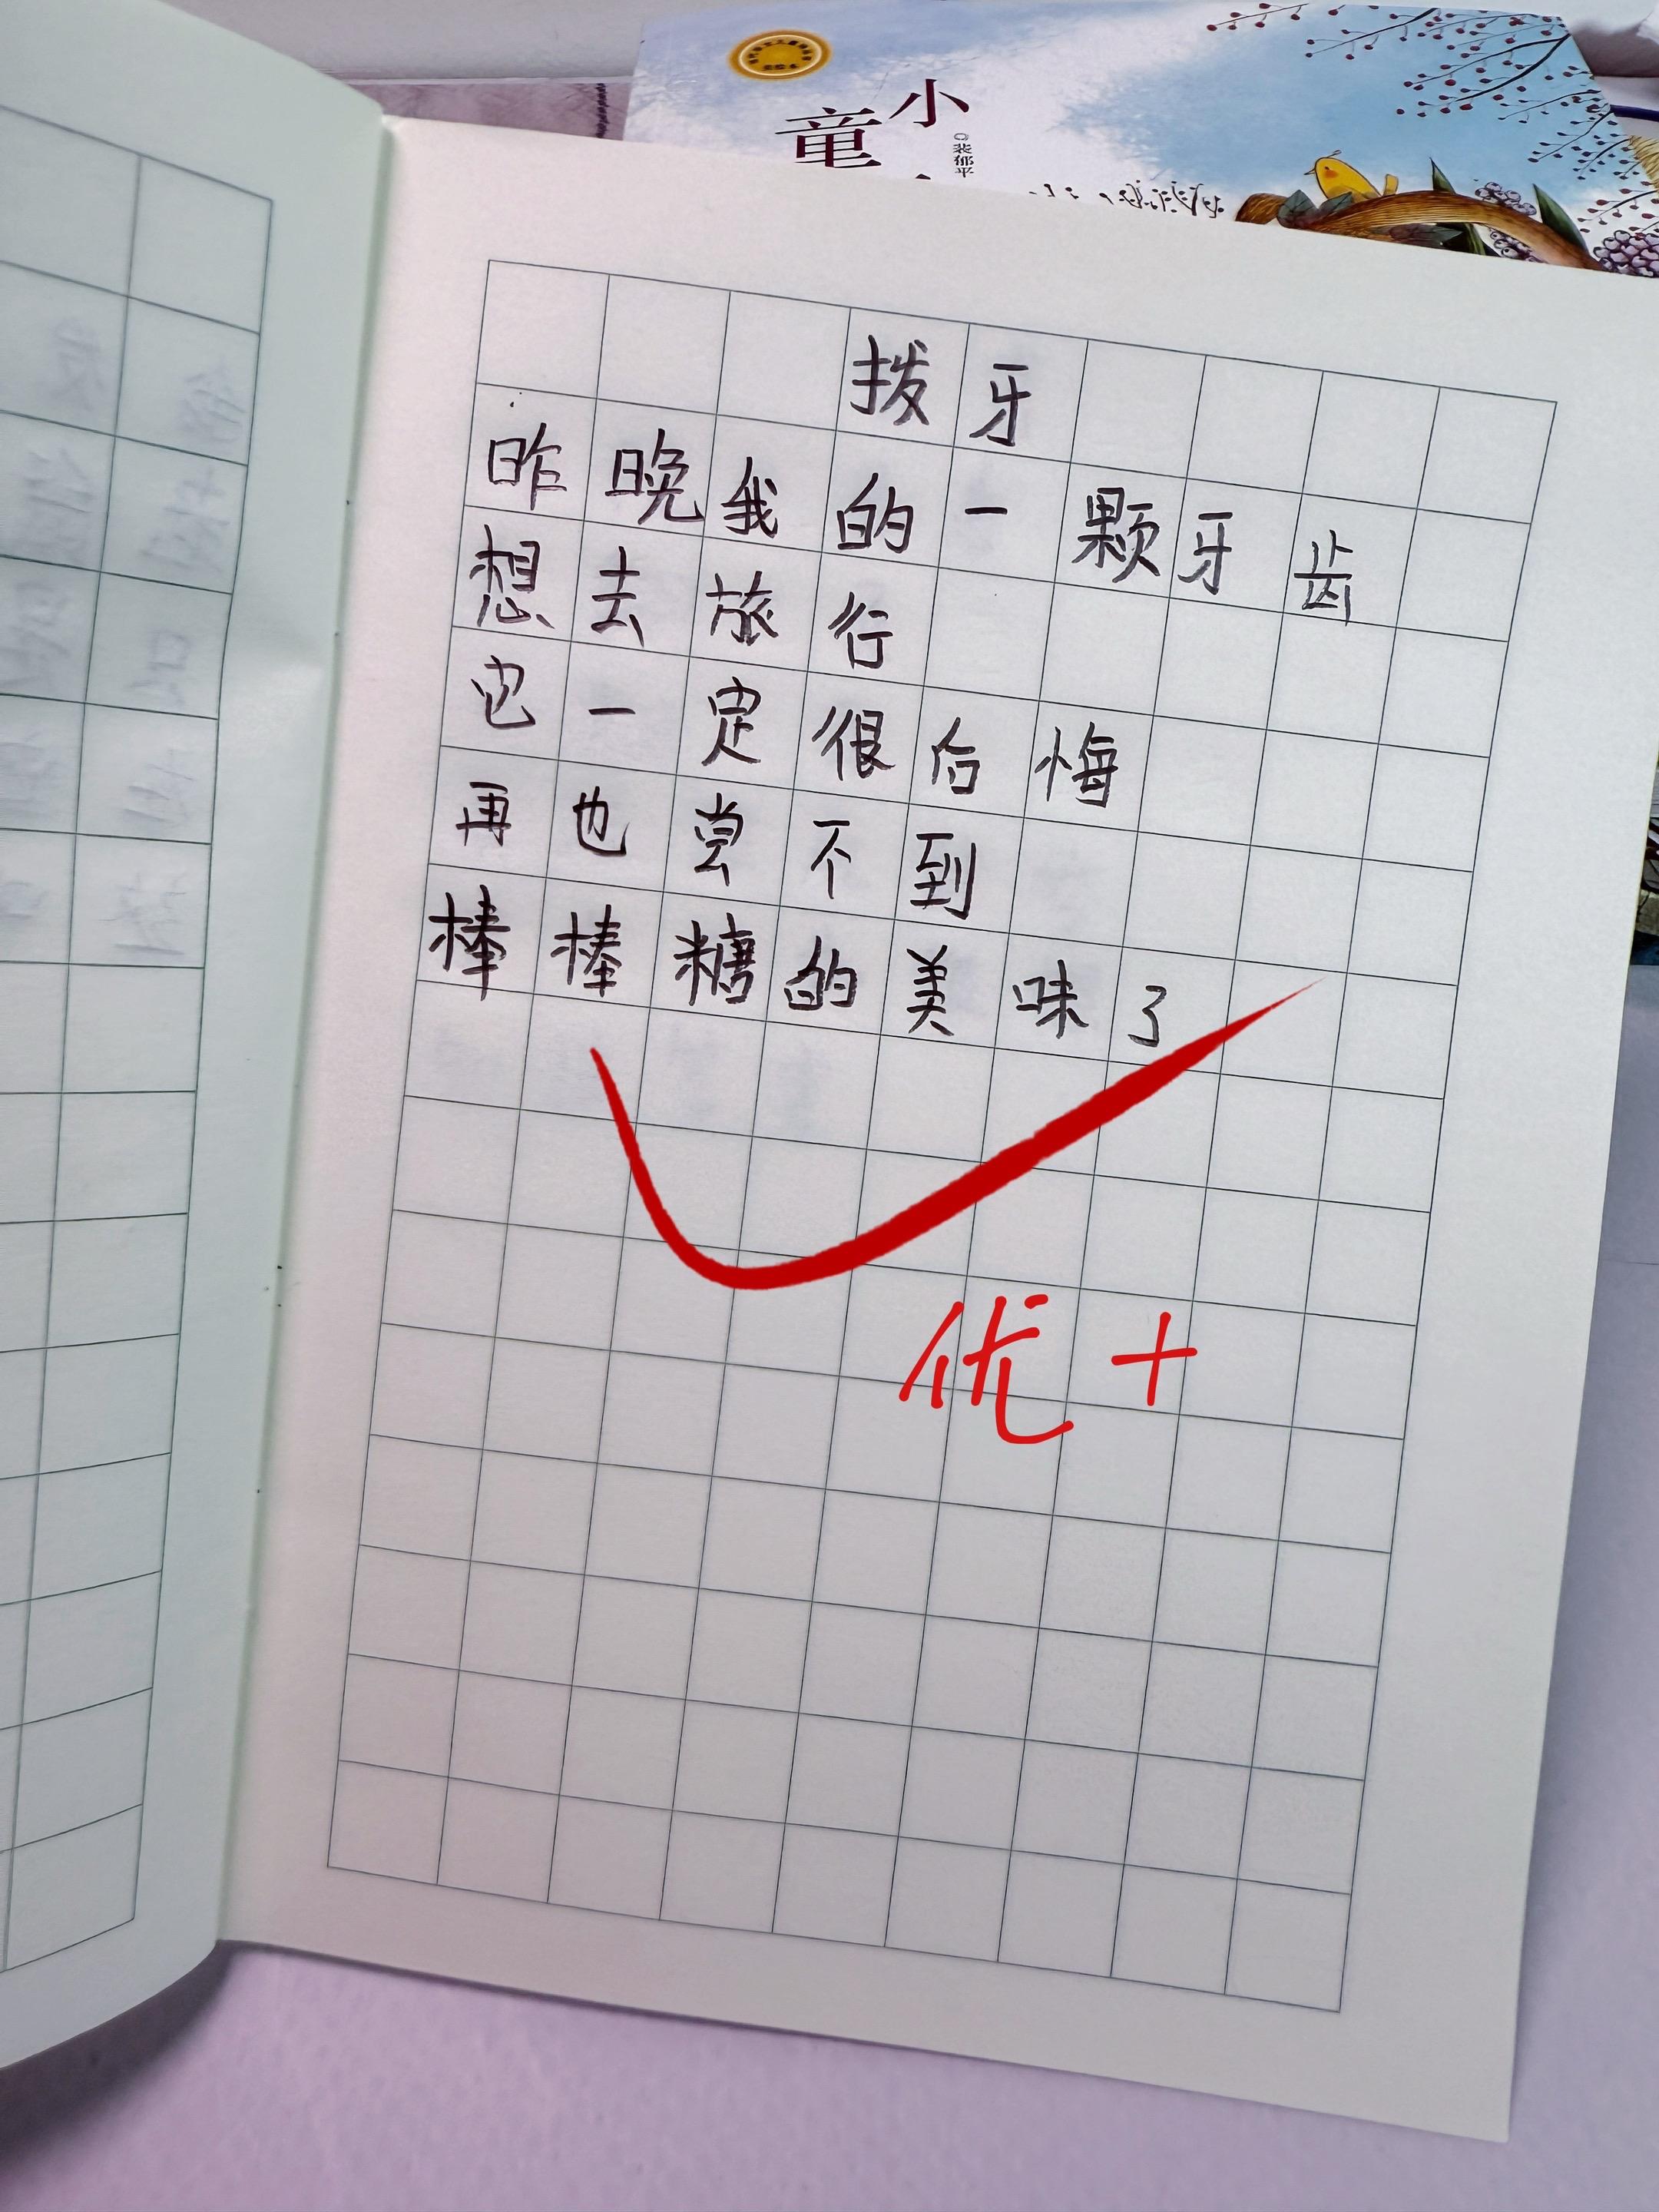 小
童
◎裴郁平
拨牙
昨晚我的一颗牙齿
想去旅行
它一定很后悔
再也尝不到
棒棒糖的美味了
优+